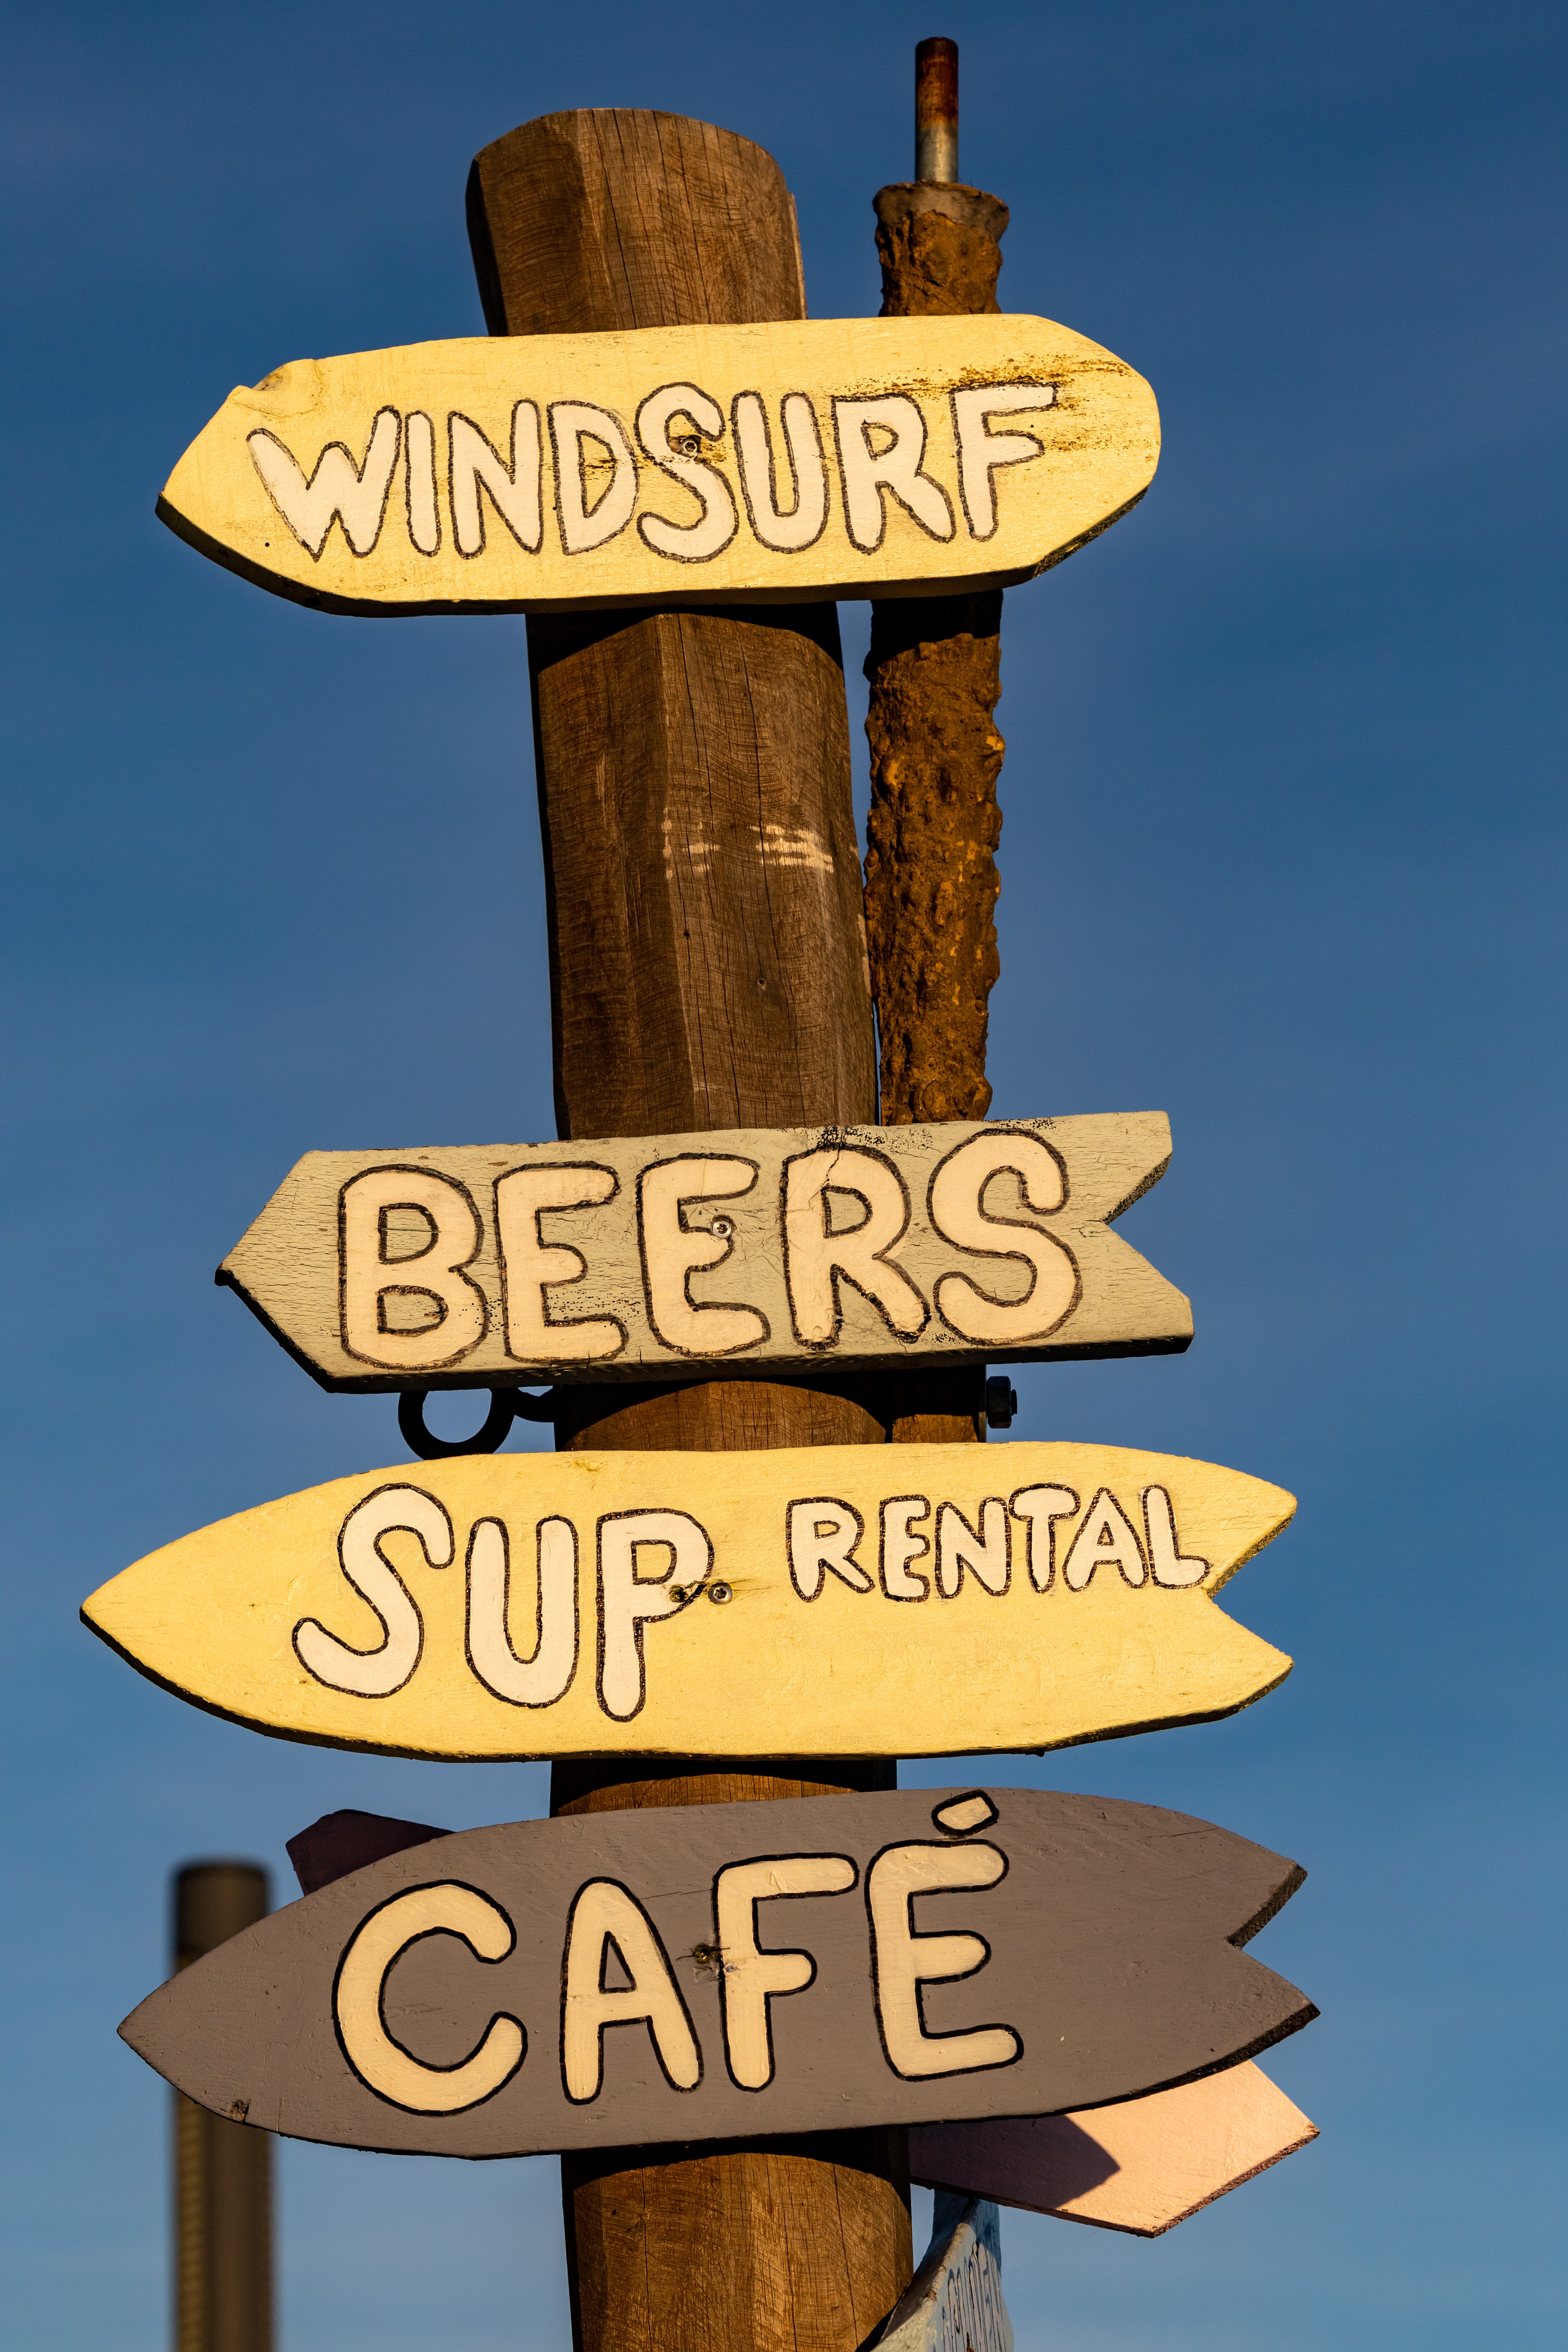 WINDSURF
BEERS
SUP RENTAL
CAFÉ